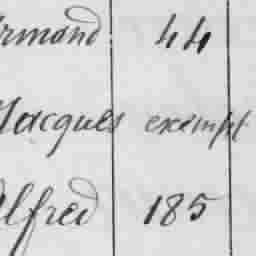 Armand 44
Jacques exempt
Alfred 185